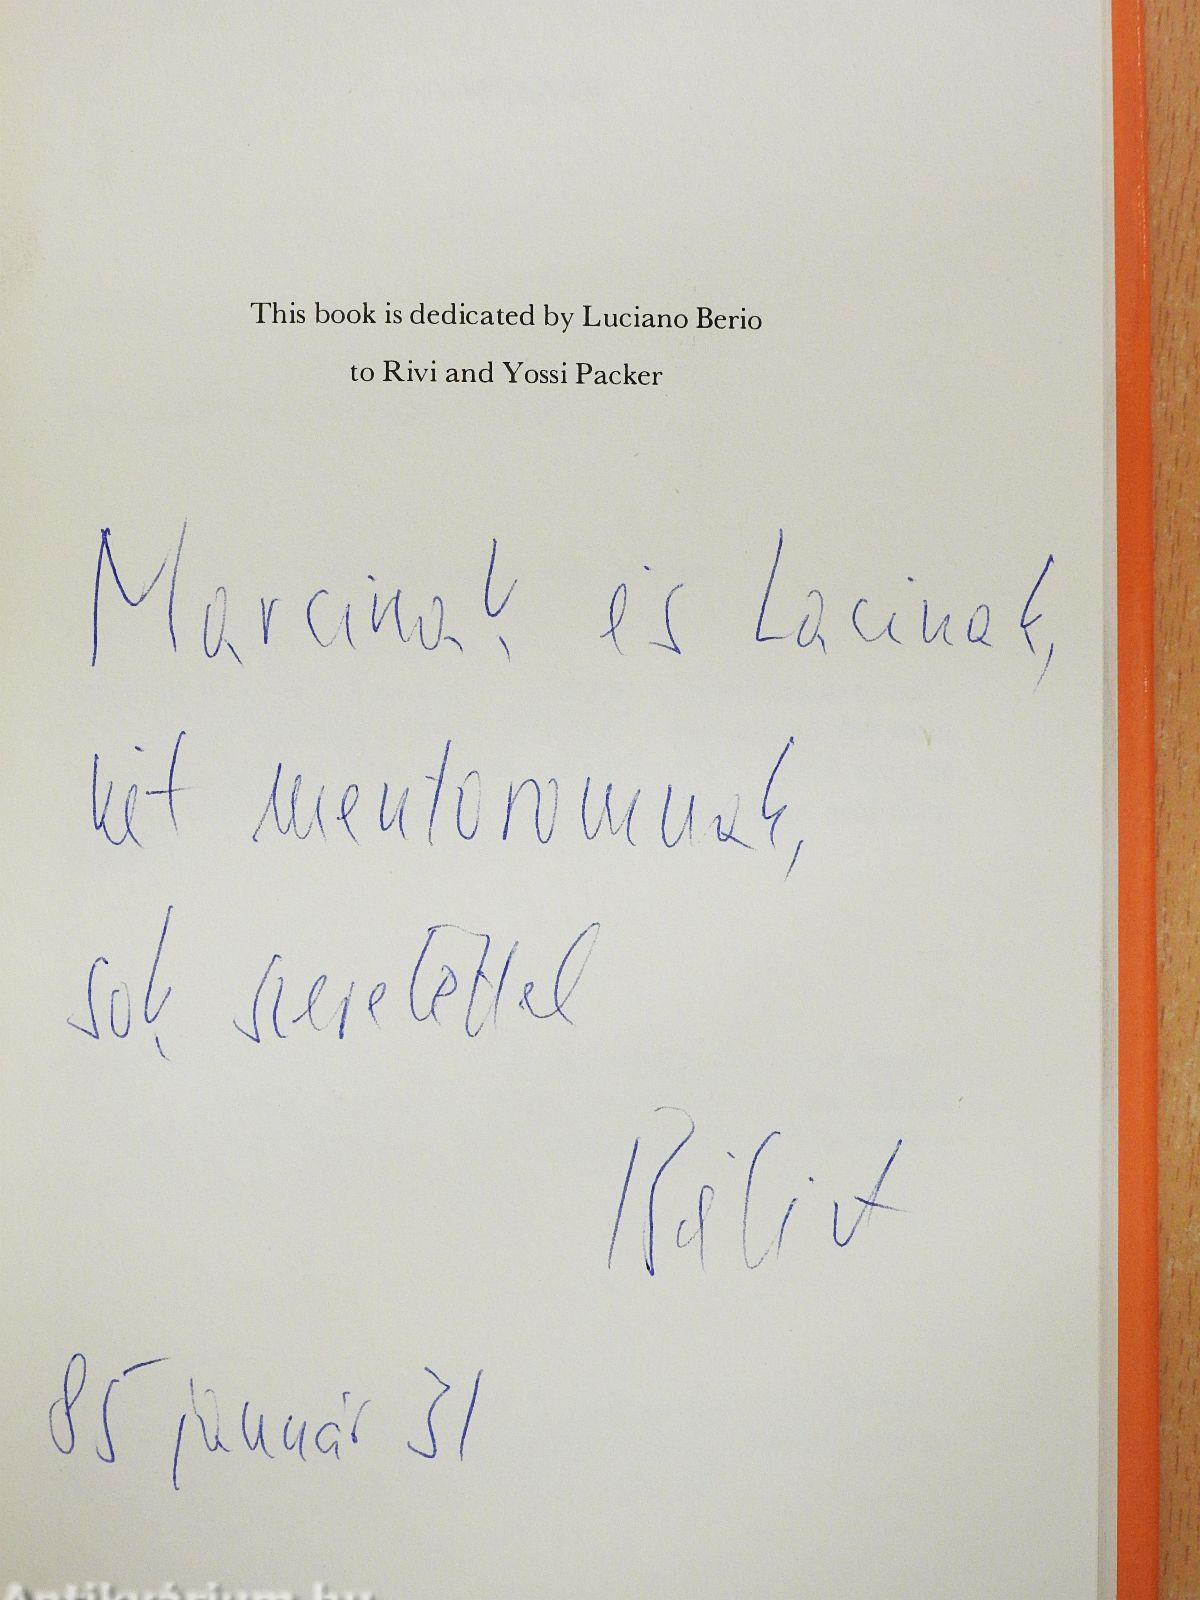 This book is dedicated by Luciano Berio
to Rivi and Yossi Packer
Marcinak és Lacinak,
két mentoromnak,
sok szeretettel
Bálint
85 január 31
Antikvárium.hu